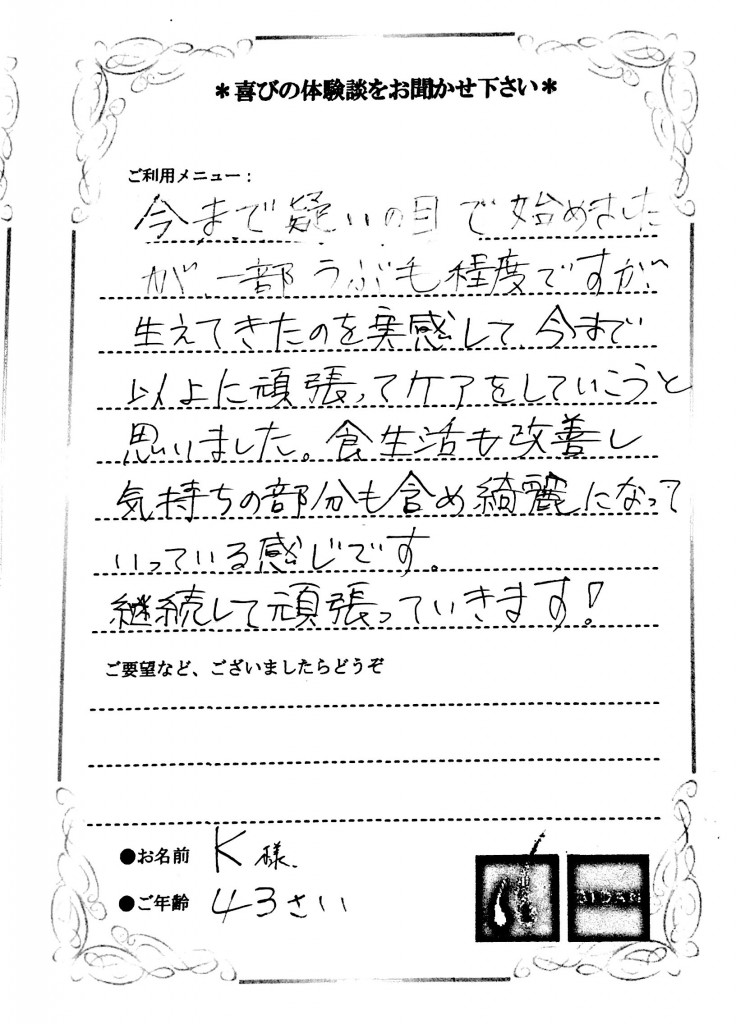 *喜びの体験談をお聞かせ下さい*
ご利用メニュー：
今まで疑いの目で始めました
が、一部うぶも程度ですが、
生えてきたのを実感して、今まで
以上に頑張ってケアをしていこうと
思いました。食生活も改善し
気持ちの部分も含め綺麗になって
いっている感じです。
継続して頑張っていきます！
ご要望など、ございましたらどうぞ
●お名前 K様.
●ご年齢 43さい